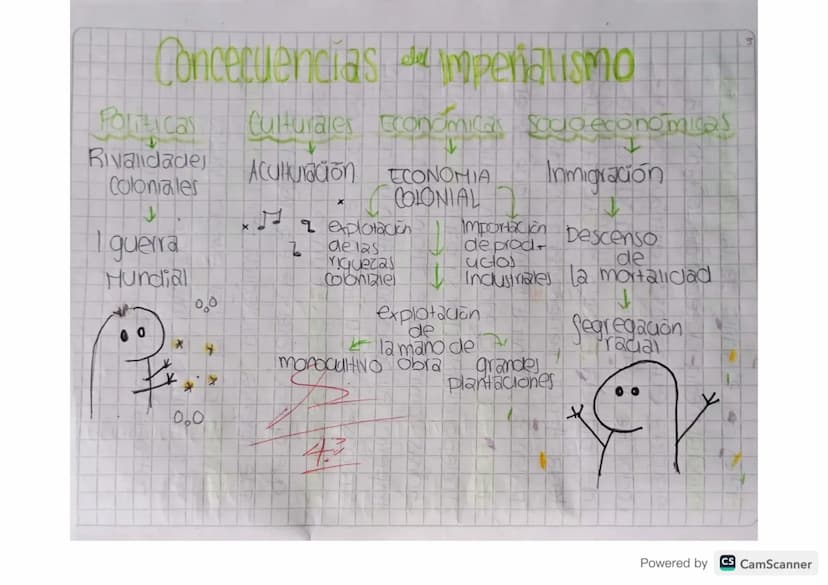 Concecuencias del imperialismo
Políticas
Rivalidades
coloniales
I guerra
Mundial
Culturales
Aculturación
Económicas
ECONOMIA
COLONIAL
explotación
de las
riquezas
coloniales
Importación
de prod-
uctos
Industriales
explotación
de
la mano de
obra
monocultivo
grandes
plantaciones
Socioeconómicas
Inmigración
Descenso
de
la mortalidad
Segregación
racial
Powered by CS CamScanner